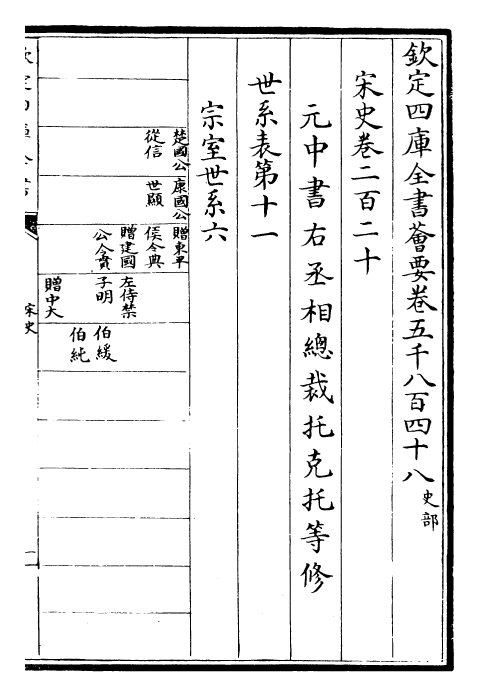 欽定四庫全書薈要卷五千八百四十八 史部
宋史卷二百二十
元中書右丞相總裁托克托等修
世系表第十一
宗室世系六
楚國公
從信
康國公
世顯
贈東平
侯令典
贈建國
公令賁
左侍禁
子明
伯緩
伯純
贈中大
欽定四庫全書
宋史
一